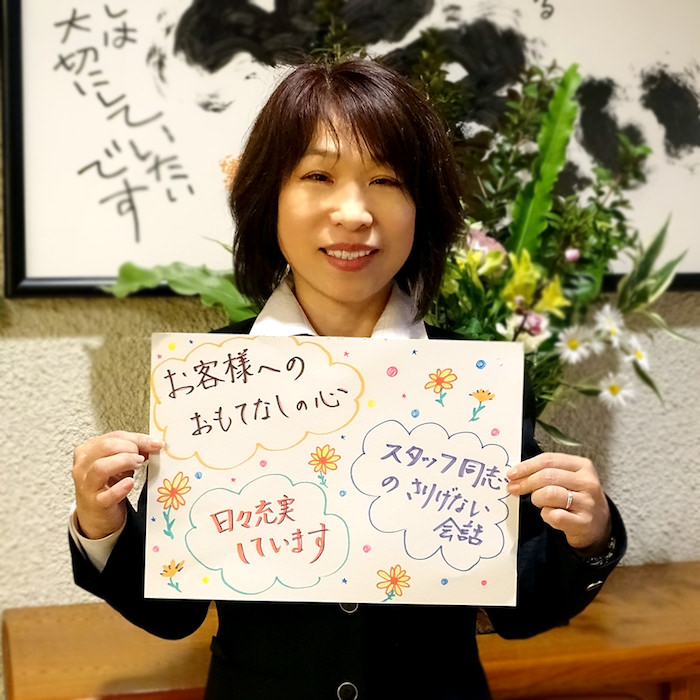 しは
大切にしていたい
です
る
お客様への
おもてなしの心
スタッフ同志
の さりげない
会話
日々充実
しています